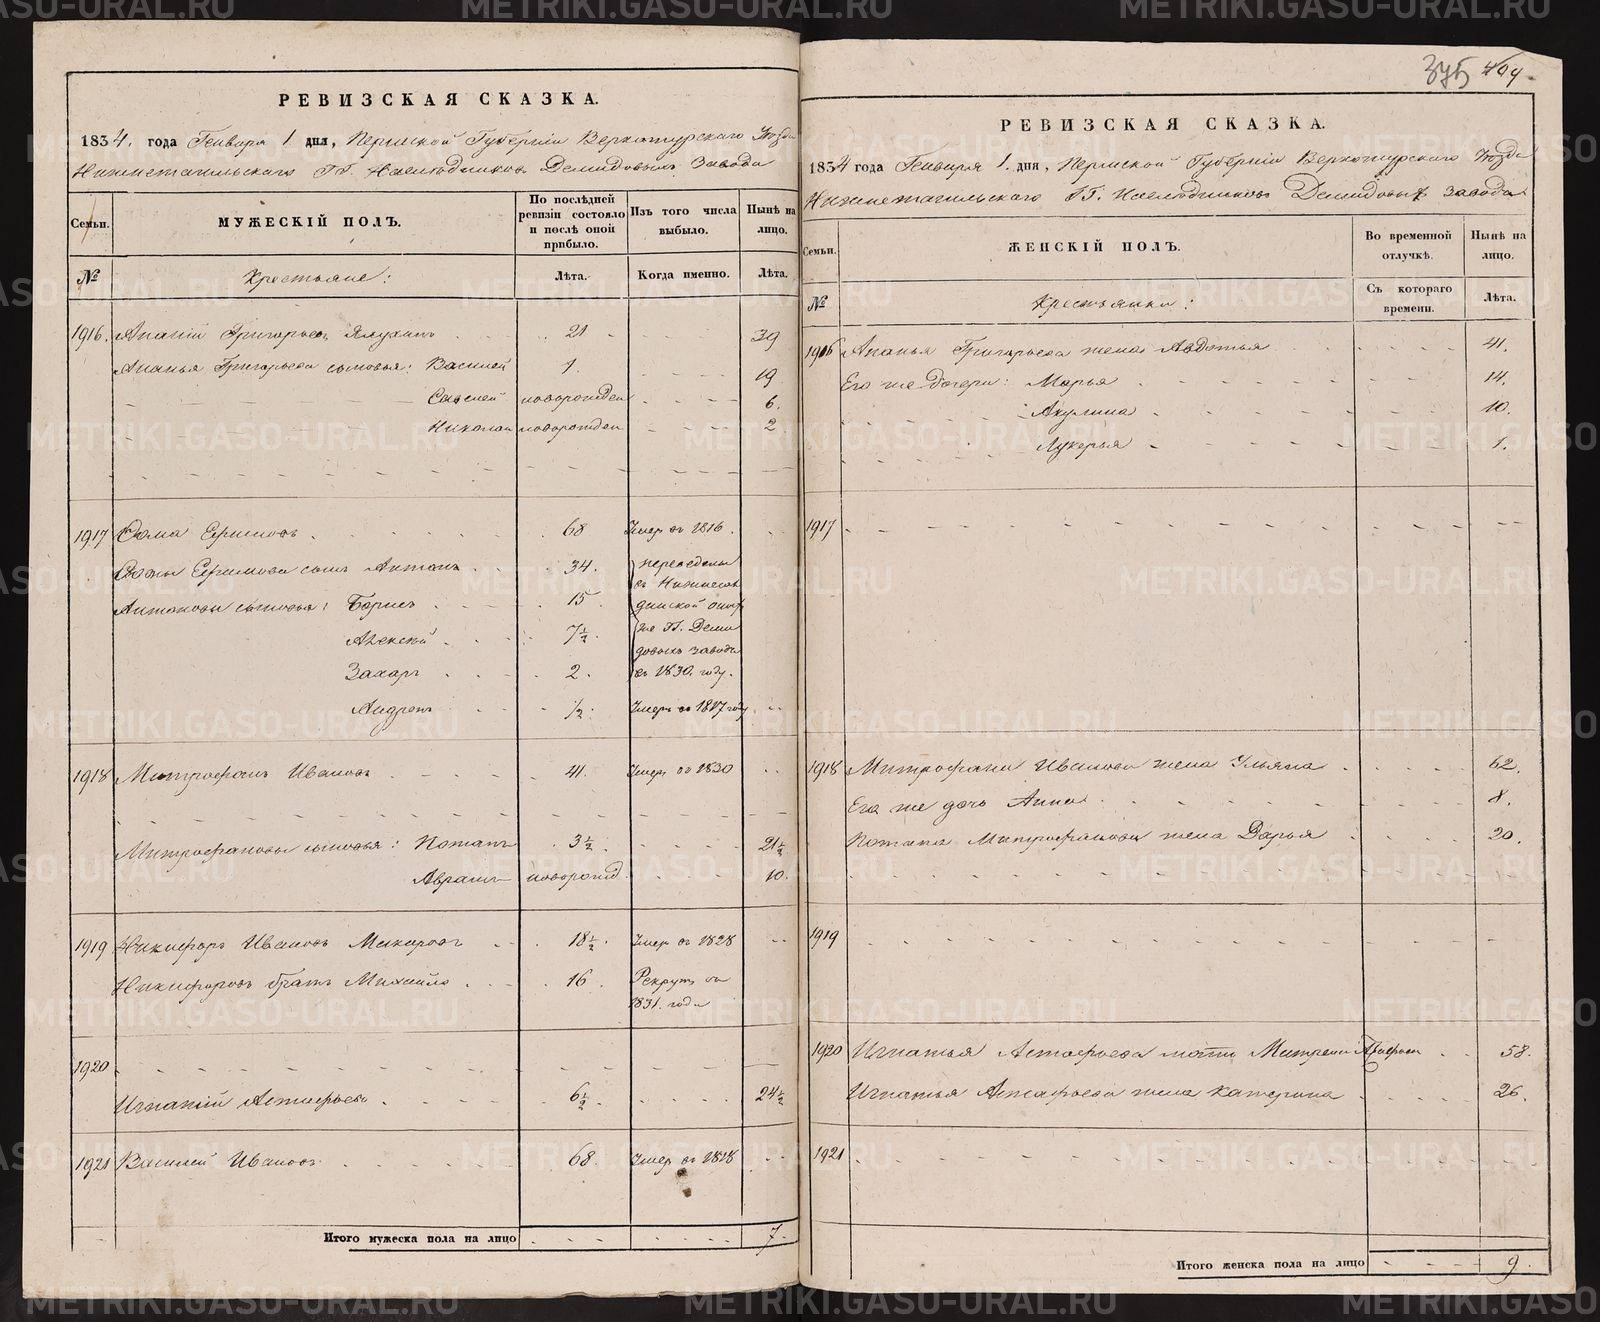 METRIKI.GASO-URAL.RU
375
РЕВИЗСКАЯ СКАЗКА.
1834. года Генваря 1 дня, Пермской Губернии Верхотурскаго Уезда
Нижнетагильскаго ГГ. Наследников Демидовых Завода
Семьи. МУЖЕСКІЙ ПОЛЪ. По послѣдней ревизіи состояло и послѣ оной прибыло. Изъ того числа выбыло. Нынѣ на лицо.
№ Крестьяне: Лѣта. Когда именно. Лѣта.
1916. Ананій Григорьевъ 21 39
Ананья Григорьева сыновья: Василей 1. 19
новорожден 6.
Николай новорожден 2
1917 Фома Ефимовъ 68 Умер въ 1816.
Фомы Ефимова сынъ Антонъ 34. переведены
въ Нижнесал
Антоновы сыновья: Борисъ 15 динской оных
Алексѣй 7½. же ГГ. Деми
довыхъ заводъ
Захаръ 2. въ 1830. году.
Андрей ½. Умеръ въ 1817 году
1918 Митрофанъ Ивановъ 41. Умер въ 1830
Митрофановы сыновья: Потапъ 3½. 21½
Аврамъ новорожд. 10.
1919 Никифоръ Ивановъ Макаровъ 18½. Умер въ 1828
Никифоровъ братъ Михайло 16. Рекрутъ въ
1831. годе
1920
Игнатій Астафьевъ 6½. 24½
1921 Василей Ивановъ 68. Умер въ 1818
Итого мужеска пола на лицо 7.
РЕВИЗСКАЯ СКАЗКА.
1834 года Генваря 1. дня, Пермской Губерніи Верхотурскаго Уезда
Нижнетагильскаго ГГ. Наследников Демидовых завода
Семьи. ЖЕНСКІЙ ПОЛЪ. Во временной отлучкѣ. Нынѣ на лицо.
№ Крестьянки: Съ котораго времени. Лѣта.
1916 Ананья Григорьева жена Авдотья 41.
Его же дочери: Марья 14.
Акулина 10.
Лукерья 1.
1917
1918 Митрофана Иванова жена Ульяна 62.
Его же дочь Анна 8.
Потапа Митрофанова жена Дарья 20.
1919
1920 Игнатья Астафьева мать 58.
Игнатья Астафьева жена Катерина 26.
1921
Итого женска пола на лицо 9.